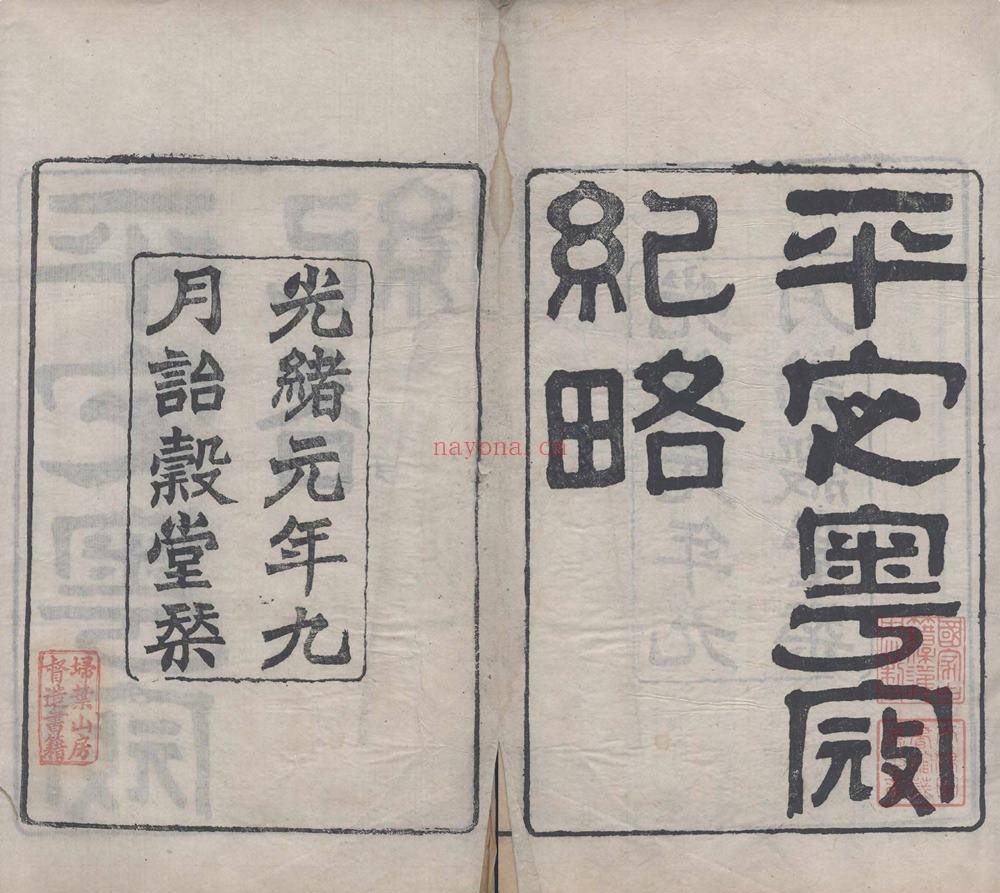 平定粵㓂
紀略
光緒元年九
月詒穀堂栞
埽葉山房
督造書籍
nayona.cn